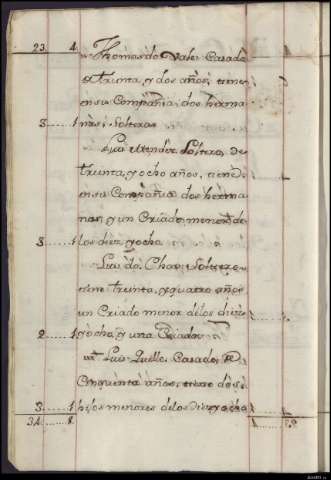 23. 4. Thomas do Valle Casado
de trinta, y dos años, tiene
en su Compañia dos herma
3 1 nas Solteras
Luis Mendez Soltero, de
treinta, y ocho años, tiene
en su Compañia dos herma
nas, y un Criado, menor de
3 1 los diez, y ocho
Luis do Chao, Soltero,
tiene trinta, y quatro años
un Criado menor delos diez
2 1 y ocho, y una Criada
Luis Casado de
Cinquenta años, tiene dos
3 1 hijos menores delos diez y ocho
34. 8.